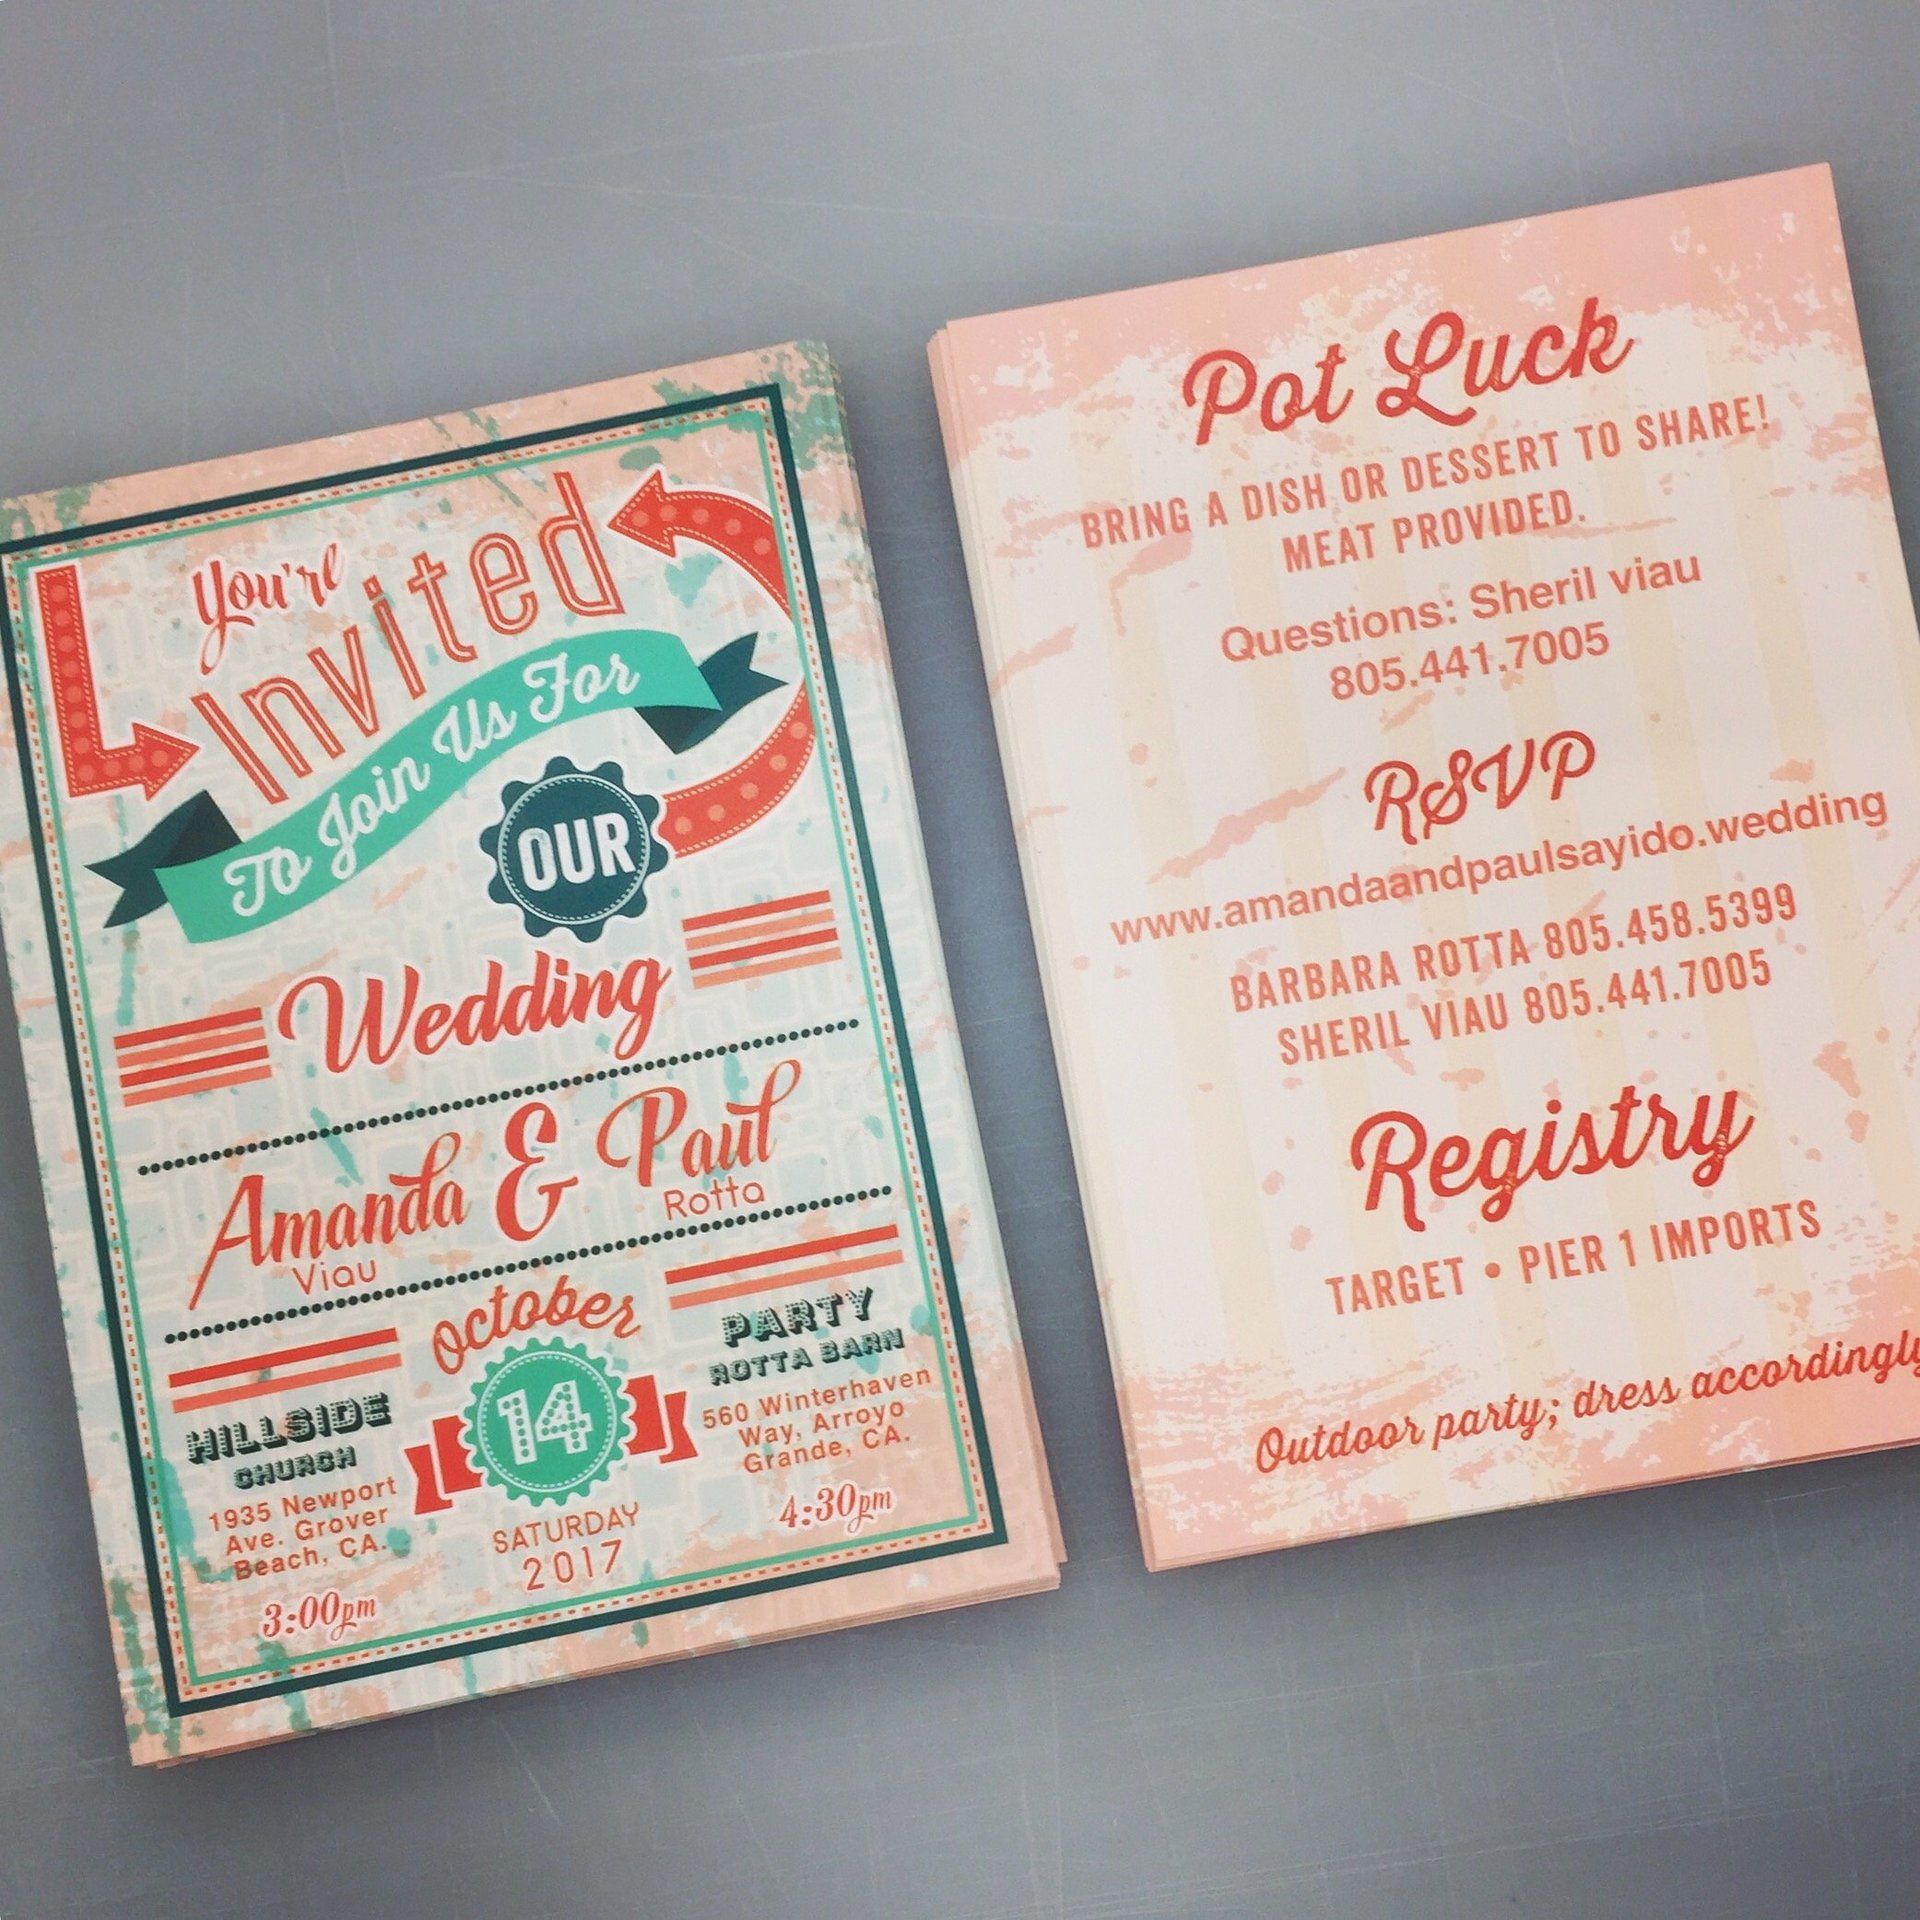 You're
Invited
To Join Us For
OUR
Wedding
Amanda & Paul
Viau
Rotta
October
14
SATURDAY
2017
HILLSIDE
CHURCH
1935 Newport
Ave. Grover
Beach, CA.
3:00pm
PARTY
ROTTA BARN
560 Winterhaven
Way, Arroyo
Grande, CA.
4:30pm
Pot Luck
BRING A DISH OR DESSERT TO SHARE!
MEAT PROVIDED.
Questions: Sheril viau
805.441.7005
RSVP
www.amandaandpaulsayido.wedding
BARBARA ROTTA 805.458.5399
SHERIL VIAU 805.441.7005
Registry
TARGET • PIER 1 IMPORTS
Outdoor party; dress accordingly